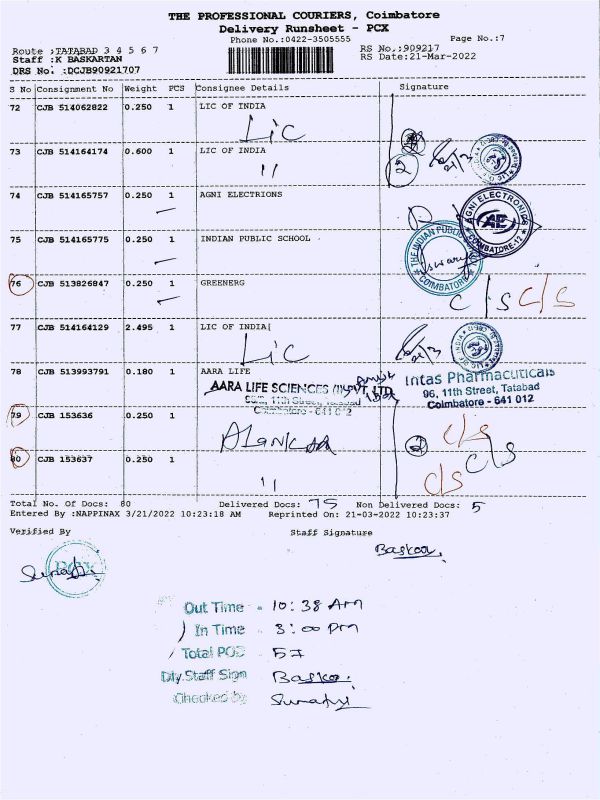 THE PROFESSIONAL COURIERS, Coimbatore
Delivery Runsheet - PCX
Phone No.:0422-3505555 Page No.:7
Route :TATABAD 3 4 5 6 7 RS No.:909217
Staff :K BASKARTAN RS Date:21-Mar-2022
DRS No. :DCJB90921707
S No Consignment No Weight PCS Consignee Details Signature
72 CJB 514062822 0.250 1 LIC OF INDIA
Lic
73 CJB 514164174 0.600 1 LIC OF INDIA
11 2
74 CJB 514165757 0.250 1 AGNI ELECTRIONS
AGNI ELECTRONICS
AE
COIMBATORE-12
75 CJB 514165775 0.250 1 INDIAN PUBLIC SCHOOL
THE INDIAN PUBLIC
COIMBATORE
76 CJB 513826847 0.250 1 GREENERG
c/s c/s
77 CJB 514164129 2.495 1 LIC OF INDIA
Lic
78 CJB 513993791 0.180 1 AARA LIFE
AARA LIFE SCIENCES LTD
Coimbatore - 641 012
Intas Pharmacuticals
96, 11th Street, Tatabad
Coimbatore - 641 012
79 CJB 153636 0.250 1
Alankar 2 c/s
80 CJB 153637 0.250 1
11 c/s c/s
Total No. Of Docs: 80 Delivered Docs: 75 Non Delivered Docs: 5
Entered By :NAPPINAX 3/21/2022 10:23:18 AM Reprinted On: 21-03-2022 10:23:37
Verified By Staff Signature
PCX
Out Time - 10:38 Am
In Time - 3:00 pm
Total POD 57
Dly.Staff Sign
Checked by